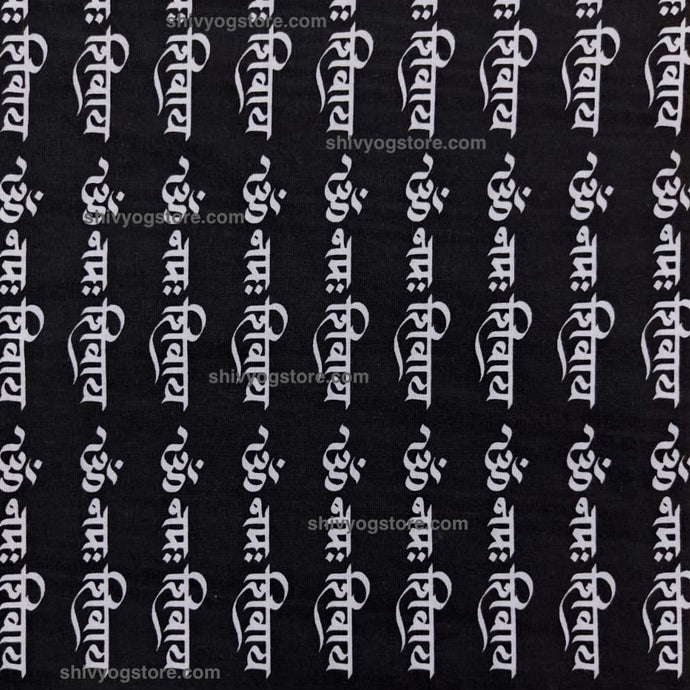 shivyogstore.com
शिवाय ॐ नमः शिवाय ॐ नमः शिवाय
शिवाय ॐ नमः शिवाय ॐ नमः शिवाय
शिवाय ॐ नमः शिवाय ॐ नमः शिवाय
शिवाय ॐ नमः शिवाय ॐ नमः शिवाय
शिवाय ॐ नमः शिवाय ॐ नमः शिवाय
शिवाय ॐ नमः शिवाय ॐ नमः शिवाय
शिवाय ॐ नमः शिवाय ॐ नमः शिवाय
शिवाय ॐ नमः शिवाय ॐ नमः शिवाय
शिवाय ॐ नमः शिवाय ॐ नमः शिवाय
shivyogstore.com
shivyogstore.com
shivyogstore.com
shivyogstore.com
shivyogstore.com